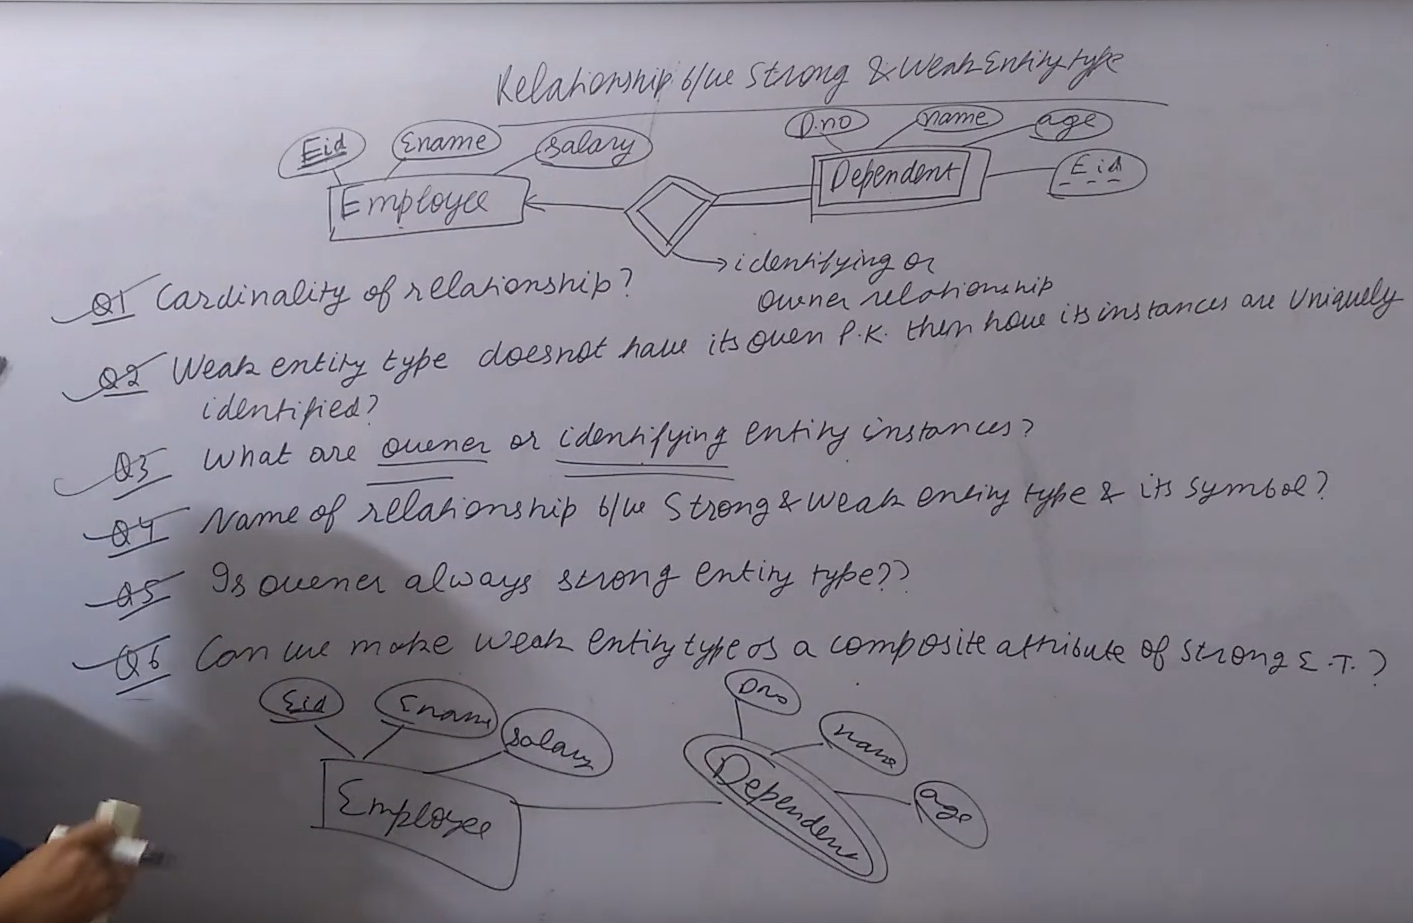 Relationship b/w Strong & Weak Entity type
Eid Ename Salary D.no name age
Employee Dependent Eid
identifying or
owner relationship
Q1 Cardinality of relationship?
Q2 Weak entity type doesnot have its owen P.K. then how its instances are Uniquely
identified?
Q3 What are owener or identifying entity instances?
Q4 Name of relationship b/w Strong & weak entity type & its symbol?
Q5 Is owener always strong entity type??
Q6 Can we make weak entity type as a composite attribute of strong E.T.?
Eid Ename Salary Dno name age
Employee Dependent